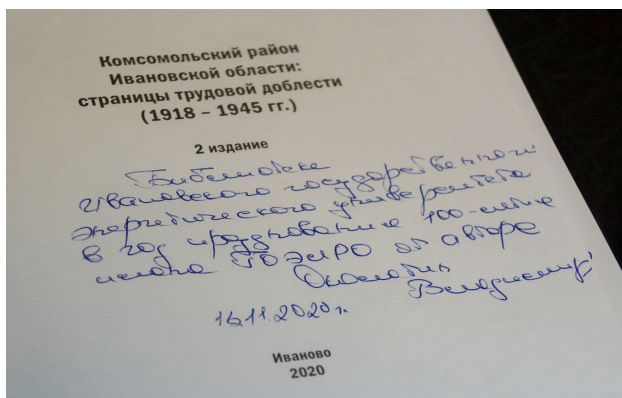 Комсомольский район
Ивановской области:
страницы трудовой доблести
(1918 – 1945 гг.)
2 издание
Библиотеке
Ивановского государственного
энергетического университета
в год празднования 100-летие
плана ГОЭЛРО от автора
Околотин
Владимир
16.11.2020 г.
Иваново
2020